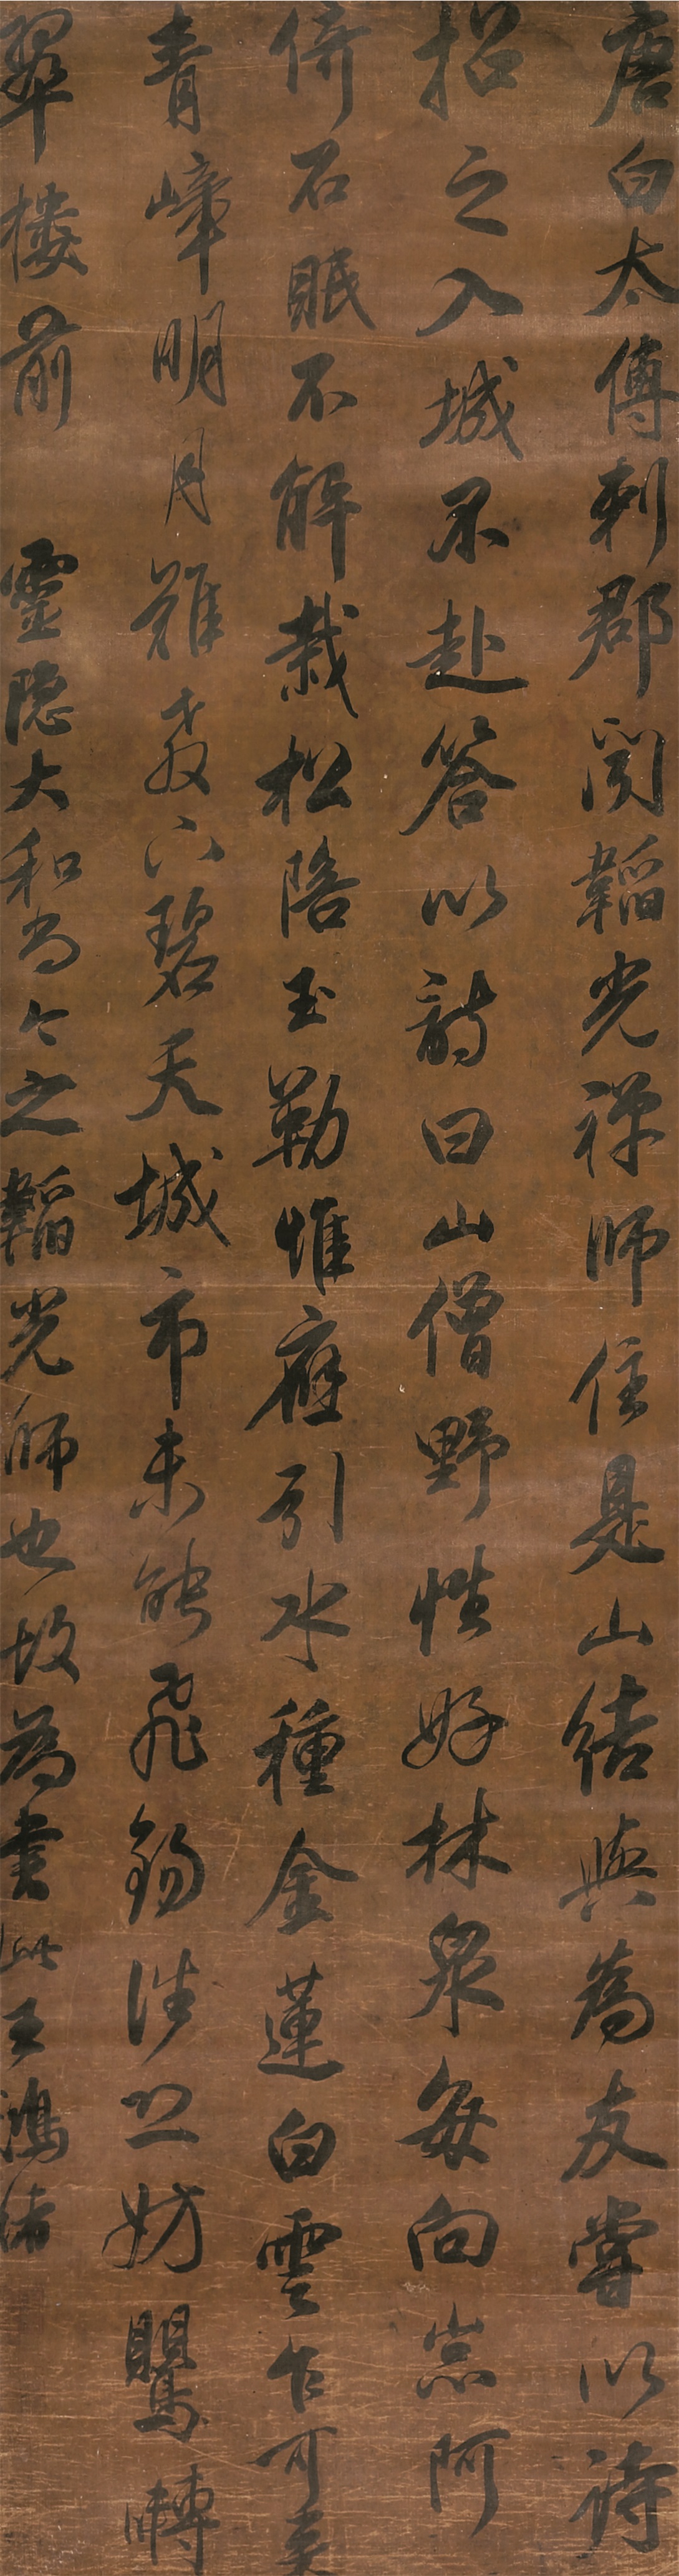 唐白太傅刺郡闻韜光禅師住是山结與為友嘗以詩
招之入城不赴答以詩曰山僧野性好林泉每向岩阿
倚石眠不解栽松陪玉勒惟應引水種金蓮白雲乍可来
青嶂明月難教下碧天城市未能飛錫去恐妨鶯囀
翠樓前 靈隐大和尚今之韜光師也故為書此王鴻緒